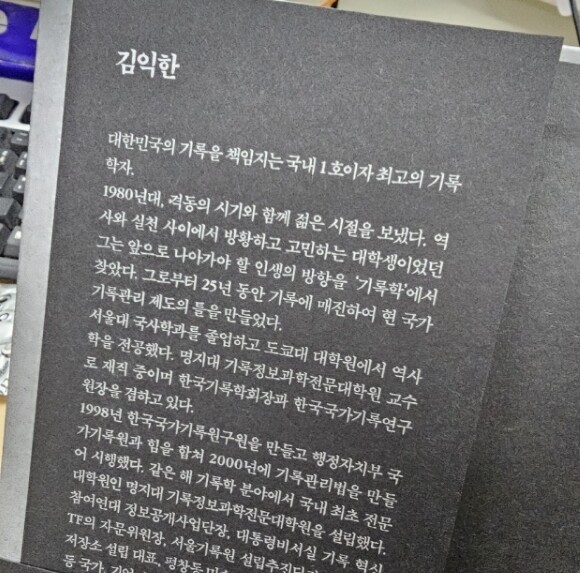 김익한
대한민국의 기록을 책임지는 국내 1호이자 최고의 기록
학자.
1980년대, 격동의 시기와 함께 젊은 시절을 보냈다. 역
사와 실천 사이에서 방황하고 고민하는 대학생이었던
그는 앞으로 나아가야 할 인생의 방향을 '기록학'에서
찾았다. 그로부터 25년 동안 기록에 매진하여 현 국가
기록관리 제도의 틀을 만들었다.
서울대 국사학과를 졸업하고 도쿄대 대학원에서 역사
학을 전공했다. 명지대 기록정보과학전문대학원 교수
로 재직 중이며 한국기록학회장과 한국국가기록연구
원장을 겸하고 있다.
1998년 한국국가기록원구원을 만들고 행정자치부 국
가기록원과 힘을 합쳐 2000년에 기록관리법을 만들
어 시행했다. 같은 해 기록학 분야에서 국내 최초 전문
대학원인 명지대 기록정보과학전문대학원을 설립했다.
참여연대 정보공개사업단장, 대통령비서실 기록 혁신
TF의 자문위원장, 서울기록원 설립추진
저장소 설립 대표, 평창동
등 국가